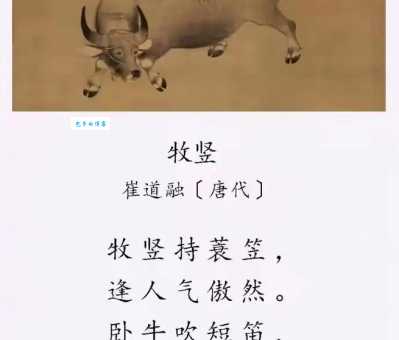 牧竖
崔道融〔唐代〕
牧竖持蓑笠，
逢人气傲然。
卧牛吹短笛，